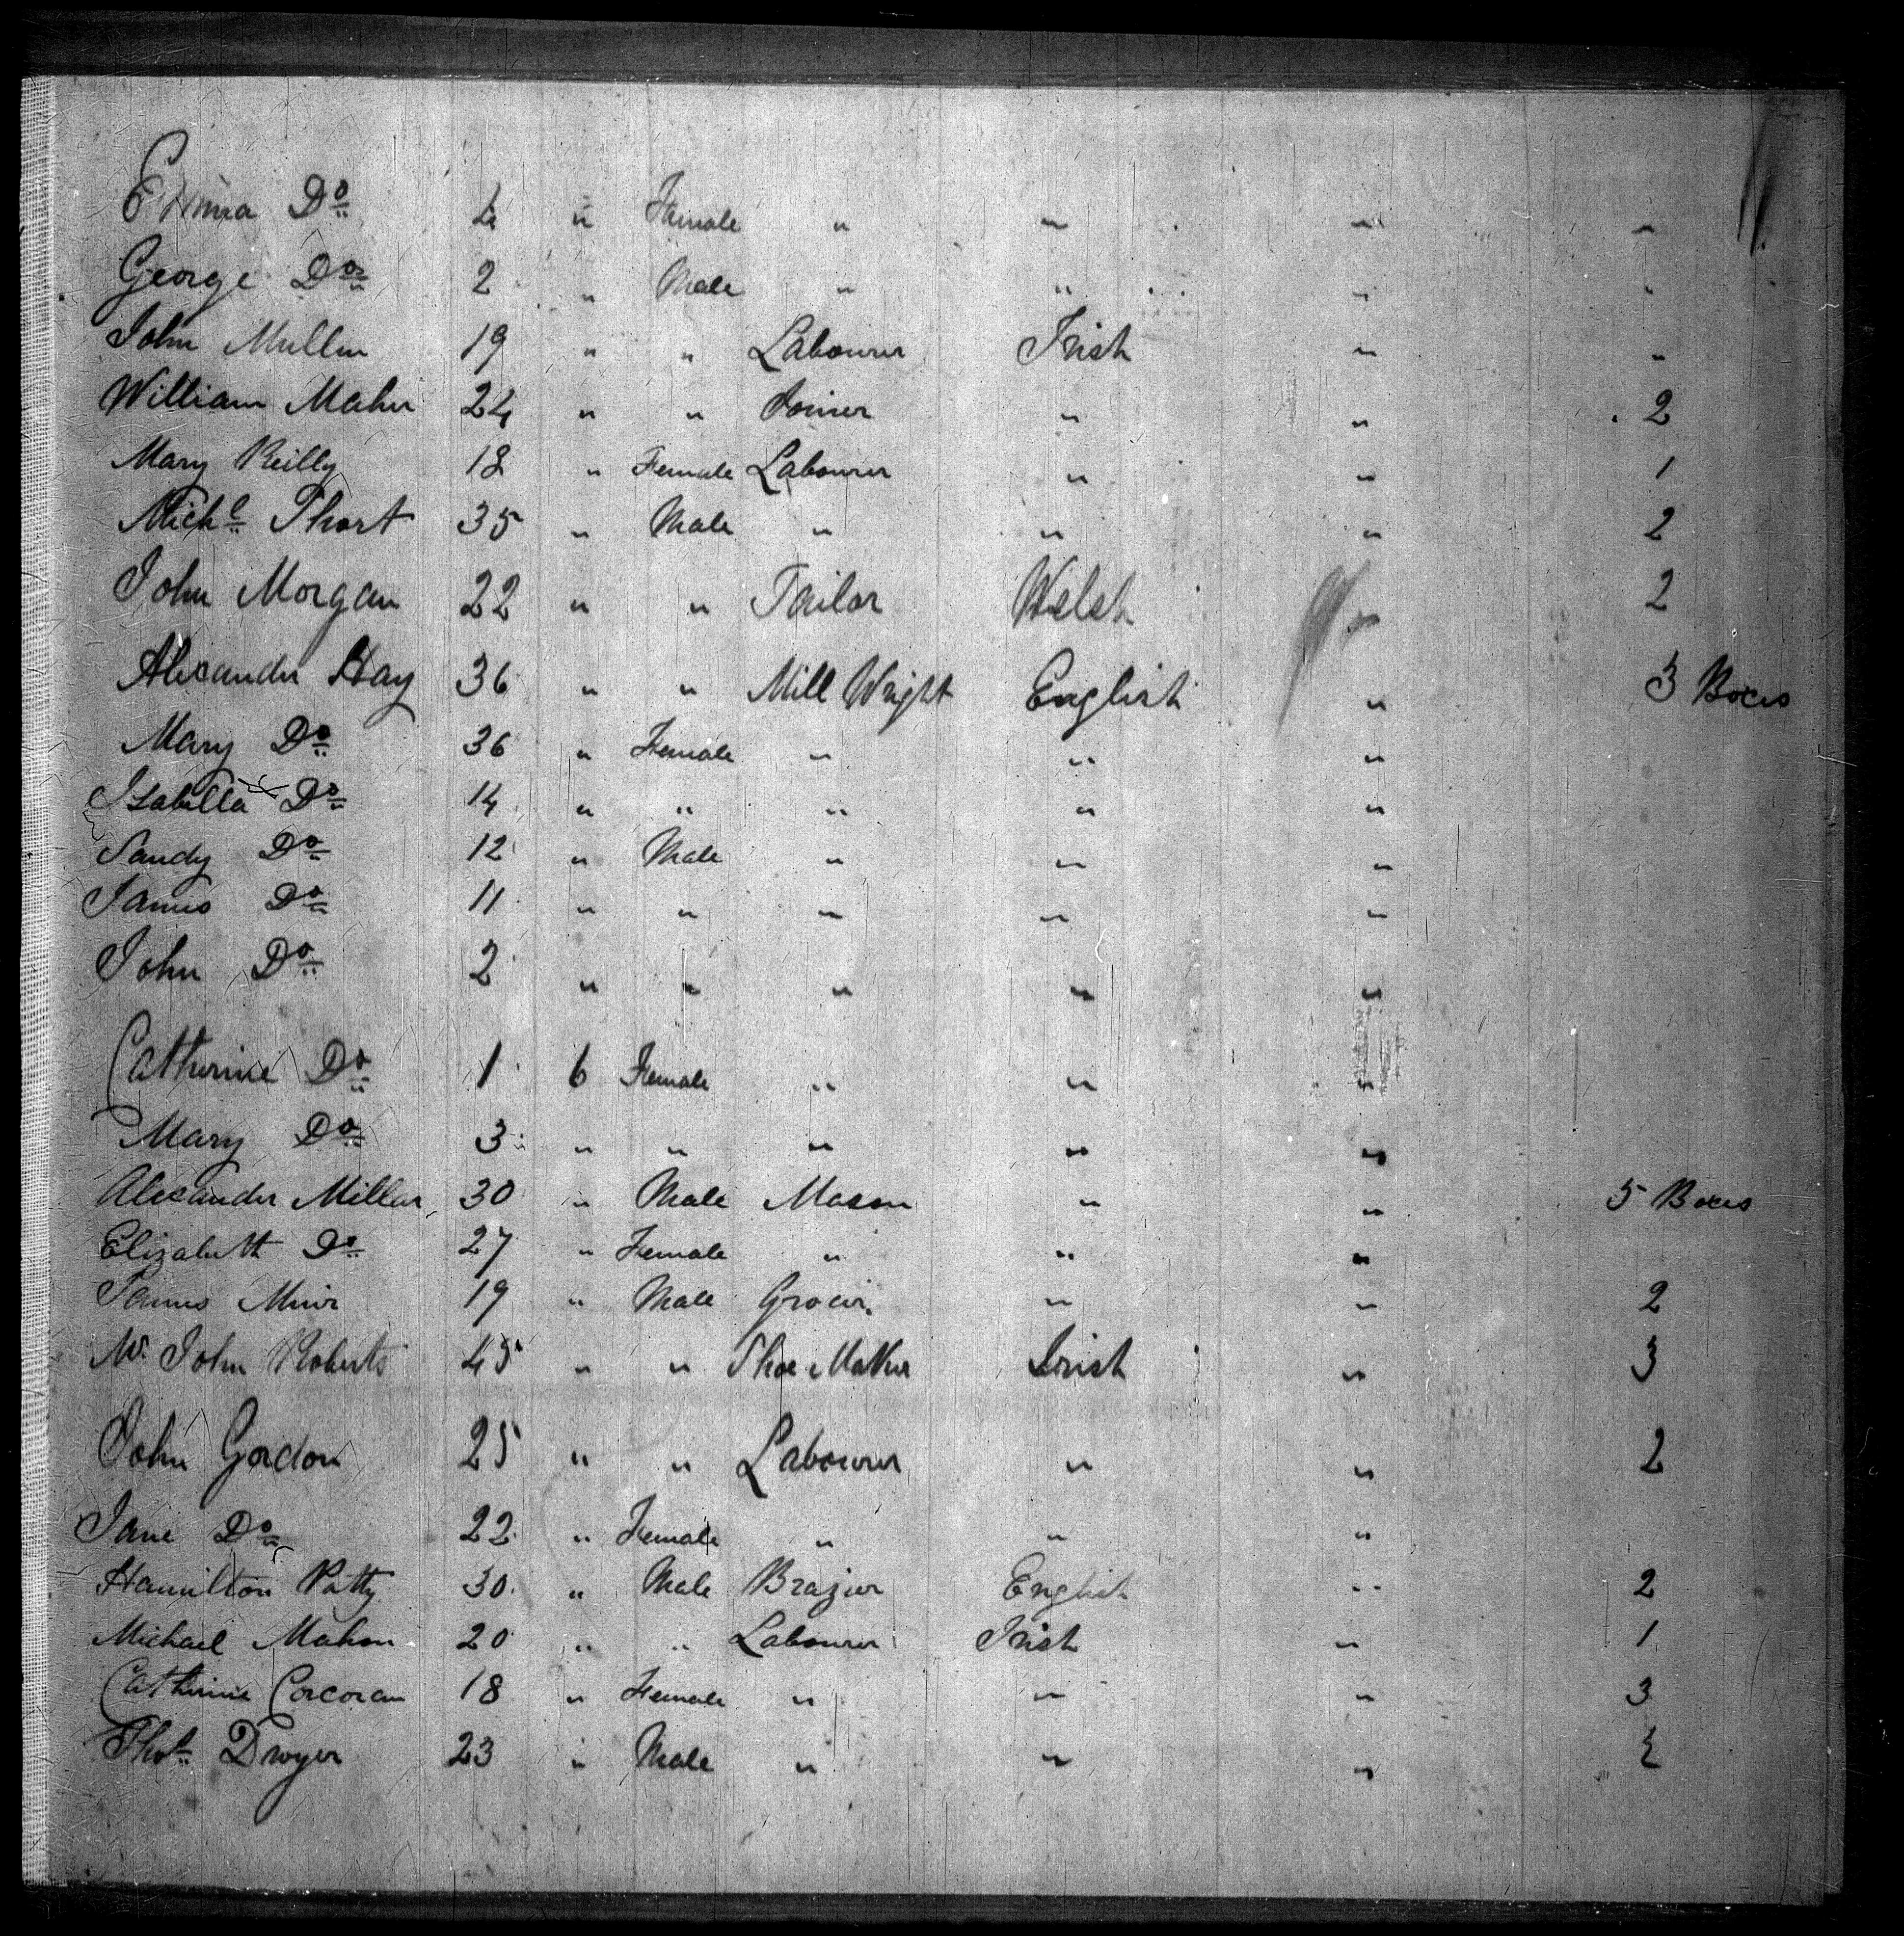 Emma Do 4 " Female " " " "
George Do 2 " Male " " " "
John Mullin 19 " " Labourer Irish " "
William Maher 24 " " Joiner " " 2
Mary Reilly 18 " Female Labourer " " 1
Michl Short 35 " Male " " " 2
John Morgan 22 " " Tailor Welsh " 2
Alexander Hay 36 " " Mill Wright English " 3 Boxes
Mary Do 36 " Female " " "
Isabella Do 14 " " " " "
Sandy Do 12 " Male " " "
James Do 11 " " " " "
John Do 2 " " " " "
Catherine Do 1 6 Female " " "
Mary Do 3 " " " " "
Alexander Millar 30 " Male Mason " " 5 Boxes
Elizabeth Do 27 " Female " " "
James Muir 19 " Male Grocer " " 2
Mr. John Roberts 45 " " Shoe Maker Irish " 3
John Gordon 25 " " Labourer " " 2
Jane Do 22 " Female " " "
Hamilton Patty 30 " Male Brazier English " 2
Michael Mahon 20 " " Labourer Irish " 1
Catherine Corcoran 18 " Female " " " 3
Thos Dwyer 23 " Male " " "